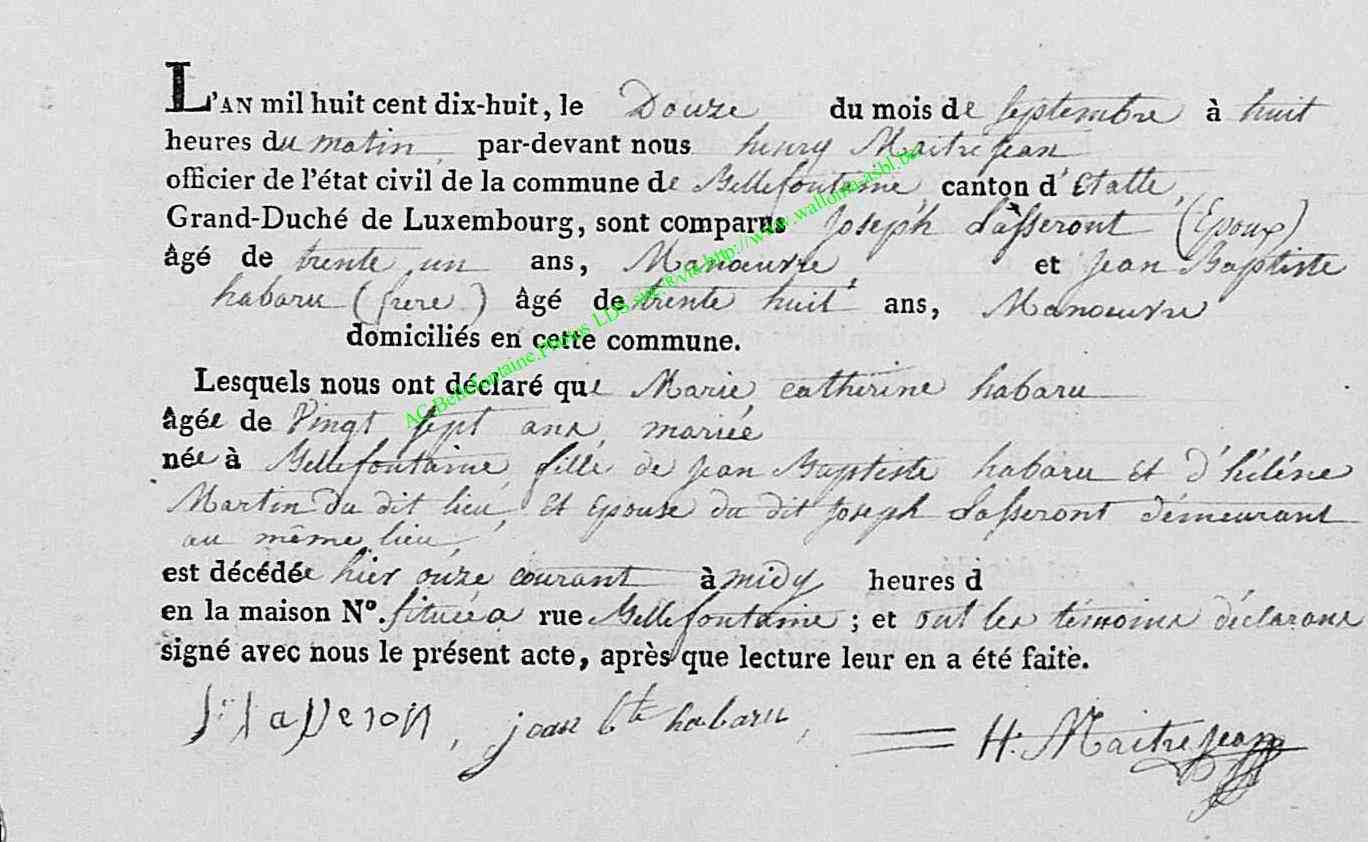 L'AN mil huit cent dix-huit, le Douze du mois de septembre à huit
heures du matin, par-devant nous henry Maitrejean
officier de l'état civil de la commune de Bellefontaine, canton d'Etalle,
Grand-Duché de Luxembourg, sont comparus Joseph Lasseront (Epoux)
âgé de trente un ans, Manoeuvre et jean Baptiste
habaru (frere) âgé de trente huit ans, Manoeuvre
domiciliés en cette commune.
Lesquels nous ont déclaré que Marie catherine habaru
âgée de Vingt sept ans, mariée
née à Bellefontaine, fille de jean Baptiste habaru et d'hélène
Martin du dit lieu, et Epouse du dit joseph Lasseront démeurant
au même lieu,
est décédée hier onze courant à midy heures d
en la maison N°. située a rue Bellefontaine ; et ont les témoins déclarans
signé avec nous le présent acte, après que lecture leur en a été faite.
J: lasseron, jean bte habaru, H: Maitrejean
AC Bellefontaine. LDS http://www.wallonia-asbl.be